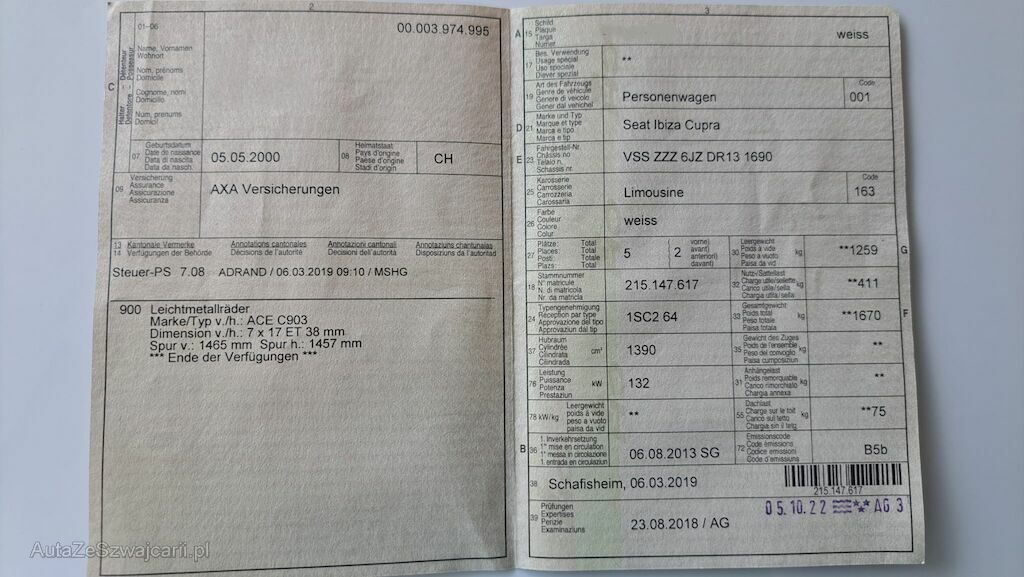 2
01-06
00.003.974.995
C
Halter
Détenteur
Detentore
Possessur
Name, Vornamen
Wohnort
Nom, prénoms
Domicile
Cognome, nomi
Domicilio
Num, prenums
Domicil
07 Geburtsdatum
Date de naissance
Data di nascita
Data da nasch.
05.05.2000
08 Heimatstaat
Pays d'origine
Paese d'origine
Stadi d'origin
CH
09 Versicherung
Assurance
Assicurazione
Assicuranza
AXA Versicherungen
13 Kantonale Vermerke Annotations cantonales Annotazioni cantonali Annotaziuns chantunalas
14 Verfügungen der Behörde Décisions de l'autorité Decisioni dell'autorità Disposiziuns da l'autoritad
Steuer-PS 7.08 ADRAND / 06.03.2019 09:10 / MSHG
900 Leichtmetallräder
Marke/Typ v./h.: ACE C903
Dimension v./h.: 7 x 17 ET 38 mm
Spur v.: 1465 mm Spur h.: 1457 mm
*** Ende der Verfügungen ***
3
A 15 Schild
Plaque
Targa
Numer
weiss
17 Bes. Verwendung
Usage spécial
Uso speciale
Diever spezial
**
19 Art des Fahrzeugs
Genre de véhicule
Genere di veicolo
Gener dal vehichel
Personenwagen
Code
001
D 21 Marke und Typ
Marque et type
Marca e tipo
Marca e tip
Seat Ibiza Cupra
E 23 Fahrgestell-Nr.
Châssis no
Telaio n.
Schassis nr.
VSS ZZZ 6JZ DR13 1690
25 Karosserie
Carrosserie
Carrozzeria
Carossaria
Limousine
Code
163
26 Farbe
Couleur
Colore
Colur
weiss
27 Plätze: Total
Places: Total
Posti: Totale
Plazs: Total
5
( 2 vorne)
avant)
anteriori)
davant)
30 Leergewicht
Poids à vide
Peso a vuoto
Paisa da vid
kg
**1259
G
18 Stammnummer
N° matricule
N. di matricola
Nr. da matricla
215.147.617
32 Nutz-/Sattellast
Charge utile/sellette
Carico utile/sella
Chargia utila/sella
kg
**411
24 Typengenehmigung
Réception par type
Approvazione del tipo
Approvaziun dal tip
1SC2 64
33 Gesamtgewicht
Poids total
Peso totale
Paisa totala
kg
**1670
F
37 Hubraum
Cylindrée
Cilindrata
Cilindrada
cm³
1390
35 Gewicht des Zuges
Poids de l'ensemble
Peso del convoglio
Paisa cumposiziun
kg
**
76 Leistung
Puissance
Potenza
Prestaziun
kW
132
31 Anhängelast
Poids remorquable
Carico rimorchiato
Chargia annexa
kg
**
78 kW/kg Leergewicht
poids à vide
peso a vuoto
paisa da vid
**
55 Dachlast
Charge sur le toit
Carico sul tetto
Chargia sin il tetg
kg
**75
B 36 1. Inverkehrsetzung
1re mise en circulation
1a messa in circolazione
1. entrada en circulaziun
06.08.2013 SG
72 Emissionscode
Code émissions
Codice emissioni
Code d'emissiuns
B5b
38 Schafisheim, 06.03.2019
215.147.617
39 Prüfungen
Expertises
Perizie
Examinaziuns
23.08.2018 / AG
05.10.22 AG 3
AutaZeSzwajcarii.pl